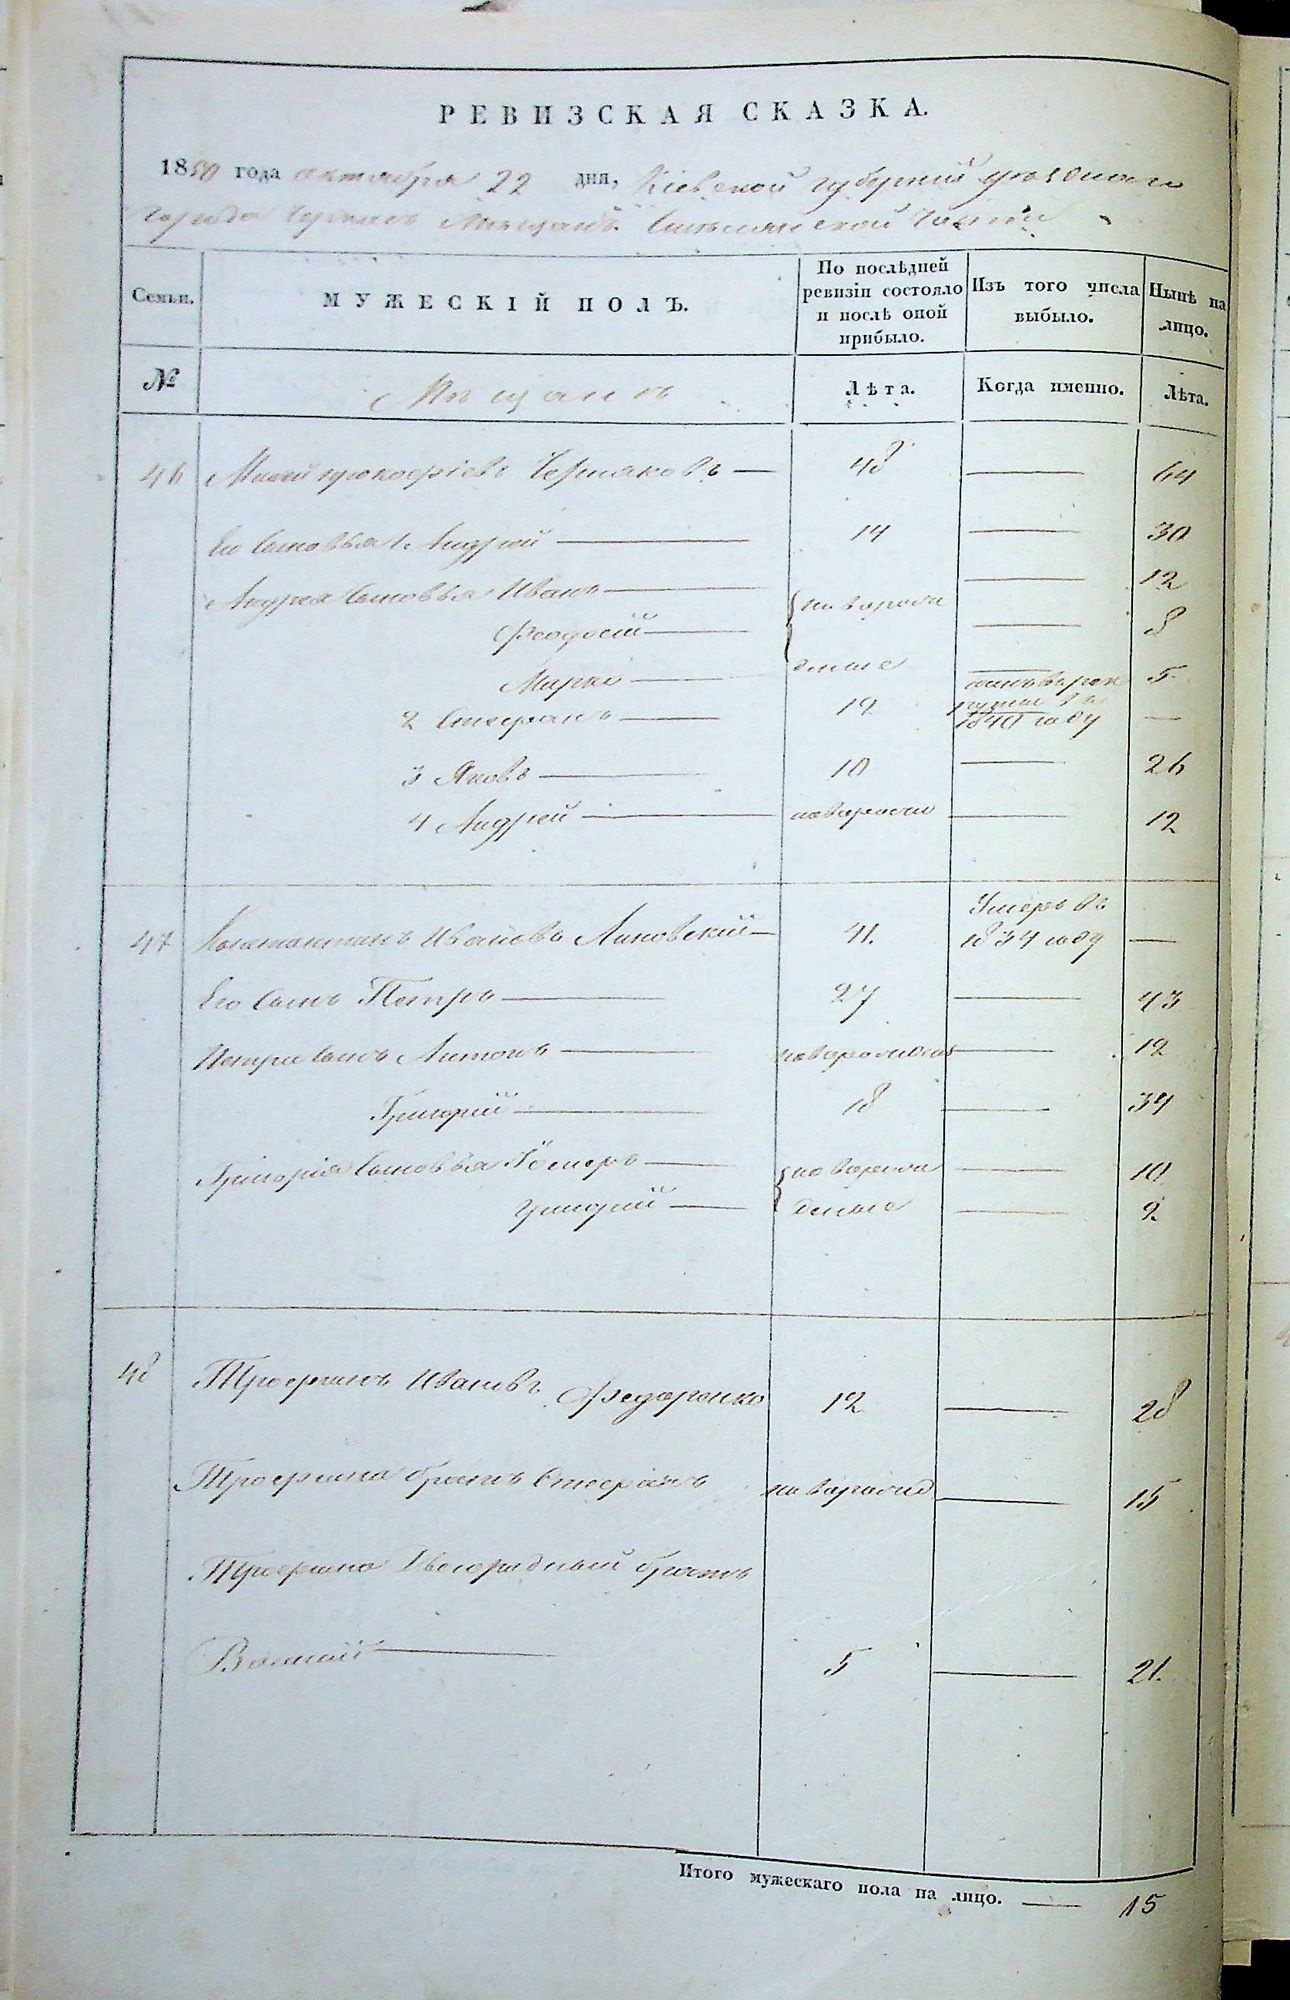 РЕВИЗСКАЯ СКАЗКА.
1850 года октября 22 дня, Кіевской губерніи уѣзднаго
города Черкасъ Мѣщанъ Смѣлянской Части
Семьи. МУЖЕСКІЙ ПОЛЪ. По послѣдней ревизіи состояло и послѣ оной прибыло. Изъ того числа выбыло. Нынѣ на лицо.
№ Мѣщанъ Лѣта. Когда именно. Лѣта.
46 Прокофіевъ Черняковъ 48 64
Его сыновья 1 Андрей 14 30
Андрея сыновья Иванъ новорож 12
Феодосій 8
Марко денные 5
2 Стефанъ 12 рекруты въ 1840 году
3 Яковъ 10 26
4 Андрей новорож 12
47 Константинъ Ивановъ Линовскій 41. Умеръ въ 1834 году
Его сынъ Петръ 27 43
Петра сынъ Антонъ новорожден 12
Григорій 18 34
Григорія сыновья новорож 10
Григорій денные 2
48 Трофимъ Ивановъ Федоренко 12 28
Трофима братъ Стефанъ новорожд 15
Трофима Двоюродный братъ
Василій 5 21.
Итого мужескаго пола на лицо. 15